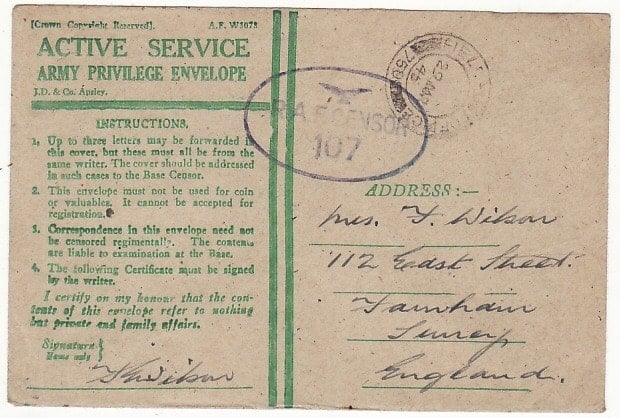 [Crown Copyright Reserved]. A.F. W3078
ACTIVE SERVICE
ARMY PRIVILEGE ENVELOPE
J.D. & Co. Apsley.
INSTRUCTIONS.
1, Up to three letters may be forwarded in
this cover, but these must all be from the
same writer. The cover should be addressed
in such cases to the Base Censor.
2. This envelope must not be used for coin
or valuables. It cannot be accepted for
registration.
3. Correspondence in this envelope need not
be censored regimentally. The contents
are liable to examination at the Base.
4. The following Certificate must be signed
by the writer.
I certify on my honour that the con-
tents of this envelope refer to nothing
but private and family affairs.
Signature }
Name only
Wilson
R.A.F. CENSOR
107
FIELD
ADDRESS :—
Mrs. F. Wilson
112 East Street.
Farnham
Surrey
England.